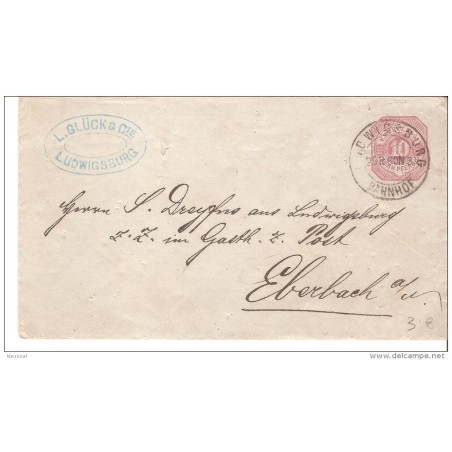 L. GLÜCK & CIE
LUDWIGSBURG
LUDWIGSBURG
10
BAHNHOF
Herrn S. Dreyfus aus Ludwigsburg
z. Z. im Gasth. z. Post
Eberbach a/
3 €
Neusual
delcampe.net